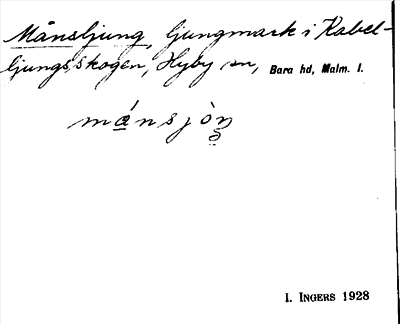 Månsljung, ljungmark i Kabel-
ljungsskogen, Hyby sn, Bara hd, Malm. l.
mǻnsjòn̥
I. INGERS 1928